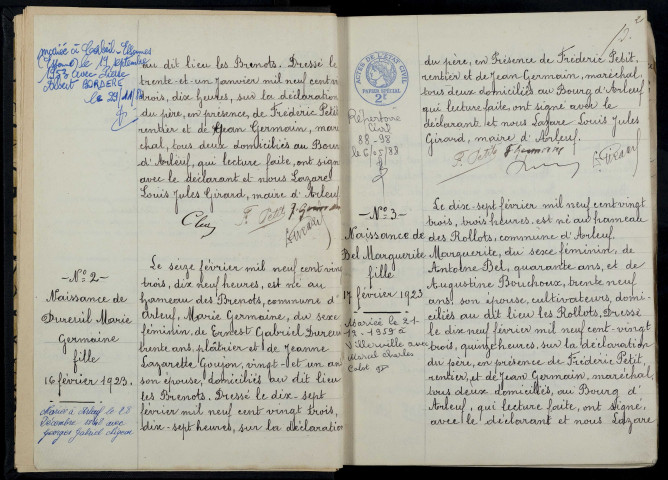 mariée à Corbeil-Essonnes
(Essonne) le 17 septembre
avec
Albert BORDERE
le 29/11/
au dit lieu les Brenots. Dressé le
trente-et-un janvier mil neuf cent vingt
trois, dix heures, sur la déclaration
du père, en présence, de Frédéric Petit
rentier et de Jean Germain, maré
chal, tous deux domiciliés au Bourg
d'Arleuf, qui lecture faite, ont signé
avec le déclarant et nous Lazare
Louis Jules Girard, maire d'Arleuf.
F. Petit J. Germain
Girard
-N° 2-
Naissance de
Dureuil Marie
Germaine
fille
16 février 1923.
Mariée à Arleuf le
décembre avec
Georges Gabriel
Le seize février mil neuf cent vingt
trois, dix neuf heures, est né au
hameau des Brenots, commune d'
Arleuf, Marie Germaine, du sexe
féminin, de Ernest Gabriel Dureuil
trente ans, plâtrier et de Jeanne
Lazarette Goujon, vingt-et un ans
son épouse, domiciliés au dit lieu
les Brenots. Dressé le dix-sept
février mil neuf cent vingt trois,
dix-sept heures, sur la déclaration
2
ACTES DE L'ETAT CIVIL
PAPIER SPECIAL
2F
Répertoire
Civil
88-98
le 6/05/88
du père, en Présence de Frédéric Petit.
rentier et de Jean Germain, maréchal,
tous deux domiciliés au Bourg d'Arleuf
qui lecture faite, ont signé avec le
déclarant et nous Lazare Louis Jules
Girard, maire d'Arleuf.
F. Petit J. Germain
Girard
-N° 3-
Naissance de
Bel Marguerite
fille
17 février 1923
Mariée le 21-
12-1959 à
Villerville avec
Marcel Charles
Calot
Le dix-sept février mil neuf cent vingt
trois, trois heures, est né au hameau
des Rollots, commune d'Arleuf.
Marguerite, du sexe féminin, de
Antoine Bel, quarante ans, et de
Augustine Bouchoux, trente neuf
ans, son épouse, cultivateurs, domi-
ciliés au dit lieu les Rollots. Dressé
le dix neuf février mil neuf cent-vingt
trois, quinze heures, sur la déclaration
du père, en présence de Frédéric Petit,
rentier, et de Jean Germain, maréchal
tous deux domiciliés, au Bourg d'
Arleuf, qui lecture faite, ont signé,
avec le déclarant et nous Lazare